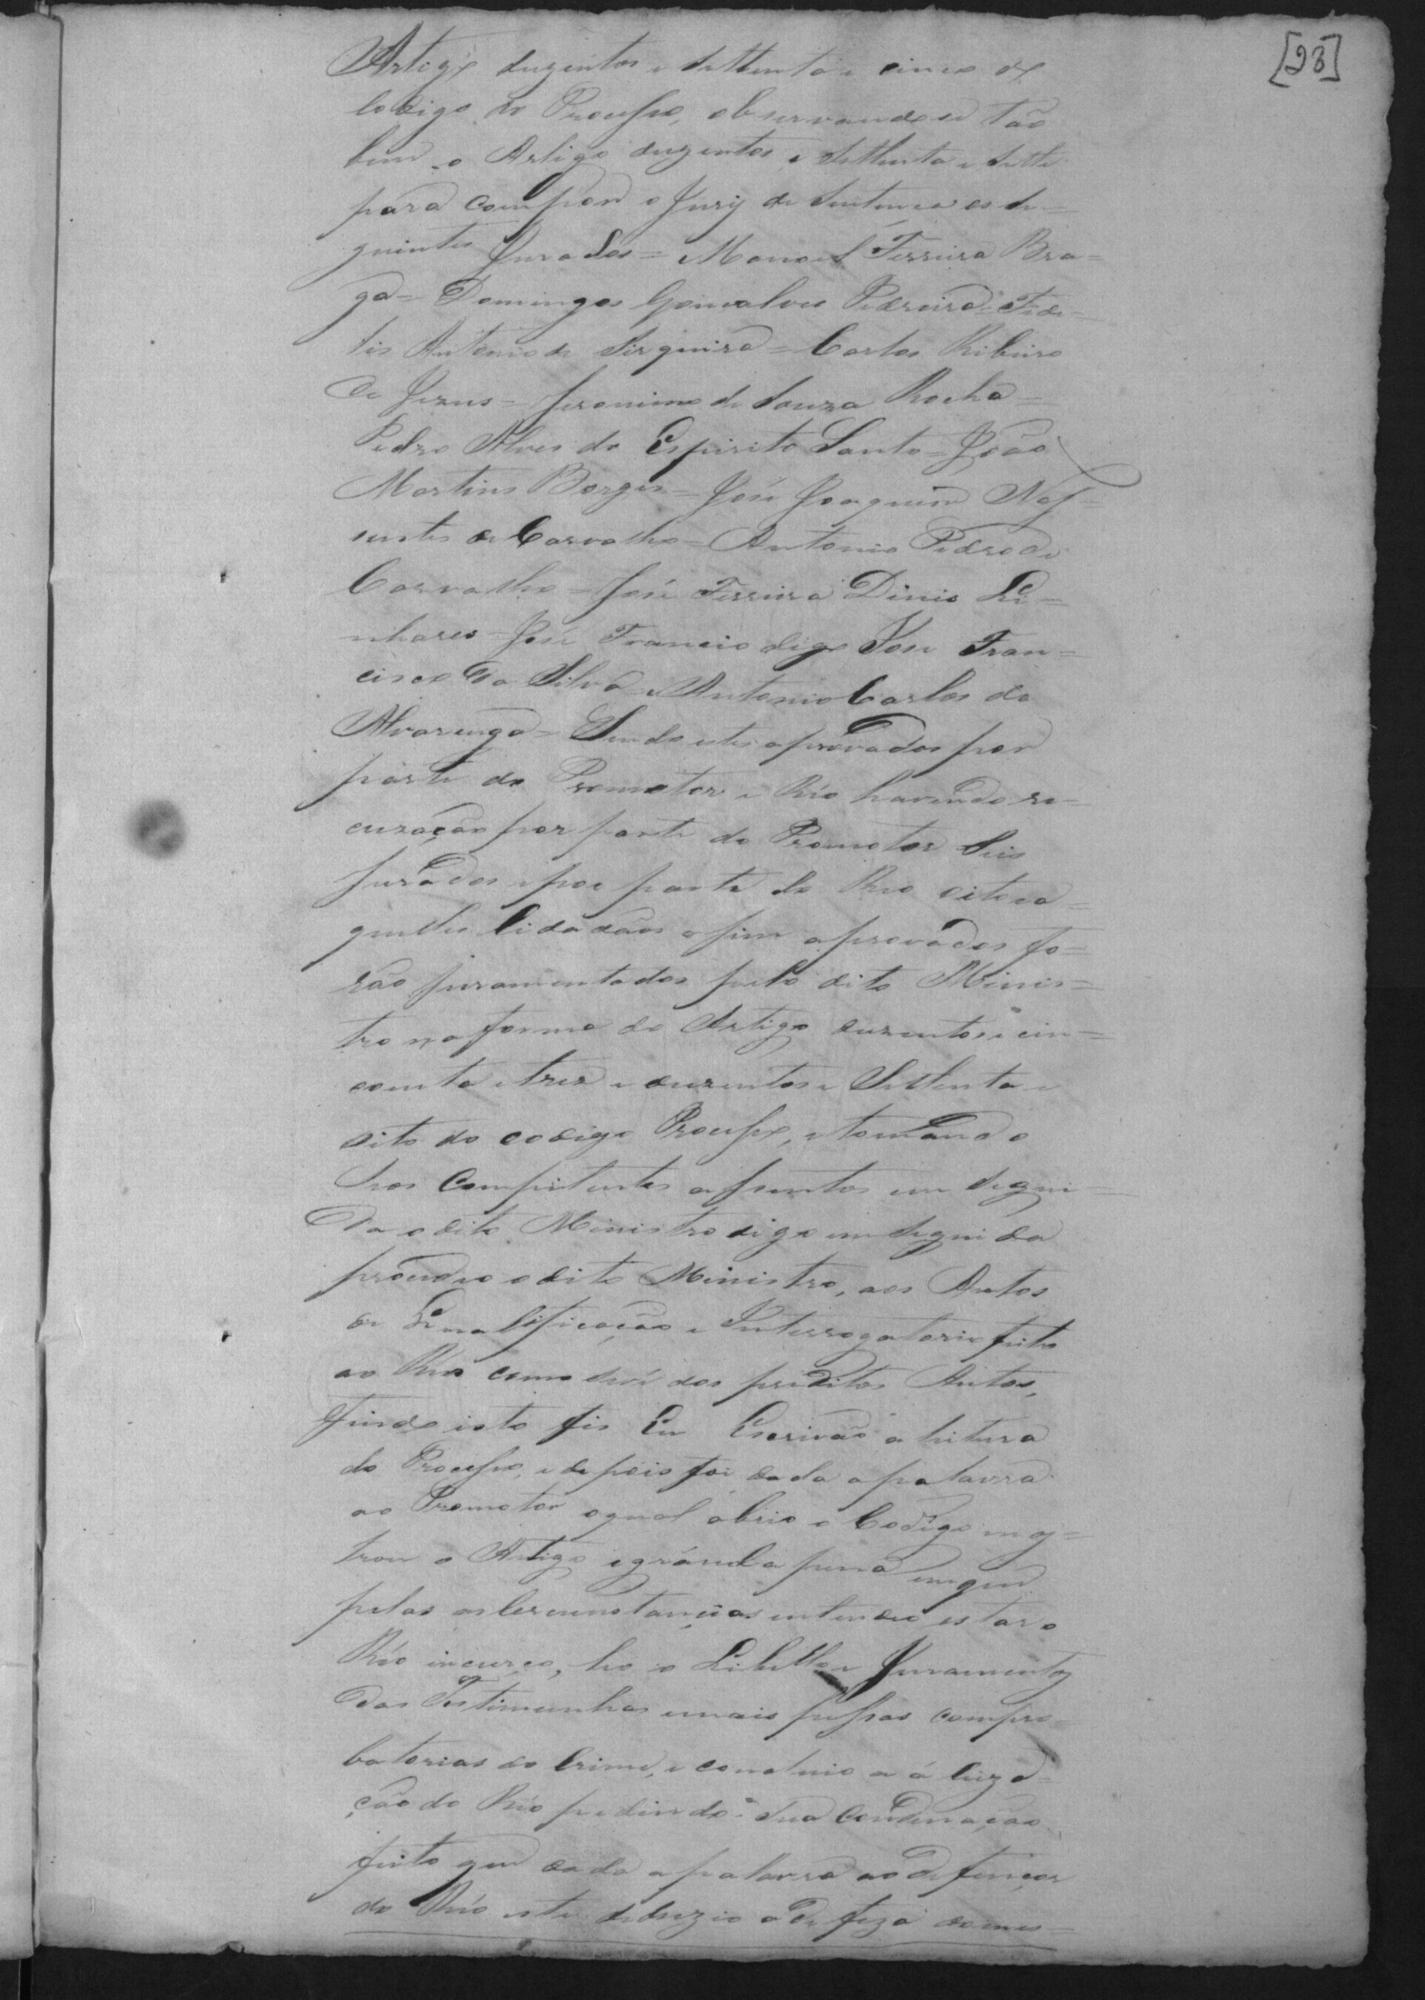 [23]
Artigo duzentos e settenta e cinco do
Codigo do Processo, observandose tão
bem o Artigo duzentos e settenta e sette
para compor o Jury de Sentença os se=
guintes Jurados = Manoel Ferreira Bra=
ga = Domingos Gonsalves Pedreira = Fide=
lis Antonio de Sirqueira = Carlos Ribeiro
de Jezus = Jeronimo de Souza Rocha =
Pedro Alves do Espirito Santo = João
Martins Borges = José Joaquim Nas=
centes de Carvalho = Antonio Pedro de
Carvalho = José Ferreira Dinis Li=
nhares = José Francio digo José Fran=
cisco da Silva e Antonio Carlos de
Alvarenga = Sendo estes aprovados por
parte do Promotor e Réo havendo re=
cuzação por parte do Promotor Seis
Jurados e por parte do Reo oito e a=
quelles Cidadãos assim aprovados fo=
rão juramentados pelo dito Minis=
tro na forma do Artigo duzentos e cin=
coenta e trez e duzentos e Settenta e
oito do codigo Processo, e tomando
seos Competentes assentos em segui=
da o dito Ministro digo em seguida
procedeo o dito Ministro, aos Autos
de Qualificação e Interrogatorio feito
ao Réo como se vê dos preditos Autos,
findo isto fis Eu Escrivão a leitura
do Processo, e depois foi dada a palavra
ao Promotor o qual abrio o Codigo mos=
trou o Artigo e gráo da pena em que
pelas as Cercunstancias entendeo estar o
Réo incurço, leo o Libello e Juramentos
das Testimunhas e mais pessas compro=
batorias do Crime, e concluio a á cuza=
ção do Réo pedindo a sua Condenação
feito que dada a palavra ao Defençor
do Réo este deduzio a Defeza do mes=